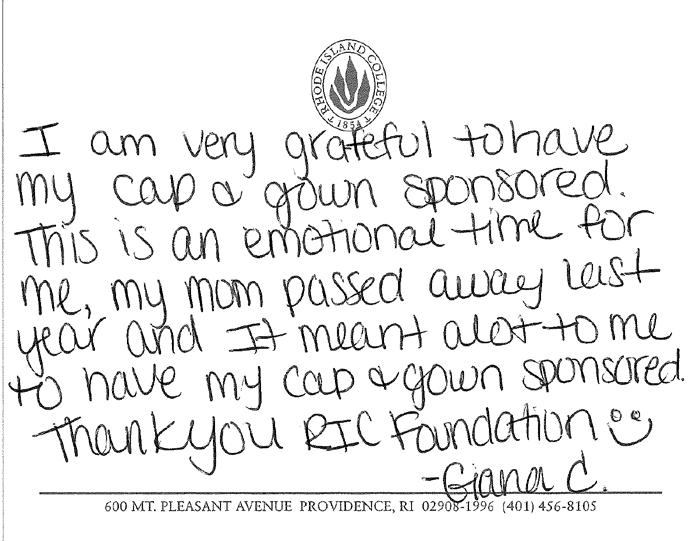 RHODE ISLAND COLLEGE
1854
I am very grateful to have
my cap & gown sponsored.
This is an emotional time for
me, my mom passed away last
year and It meant alot to me
to have my cap & gown sponsored.
Thankyou RIC Foundation
-Giana C.
600 MT. PLEASANT AVENUE PROVIDENCE, RI 02908-1996 (401) 456-8105